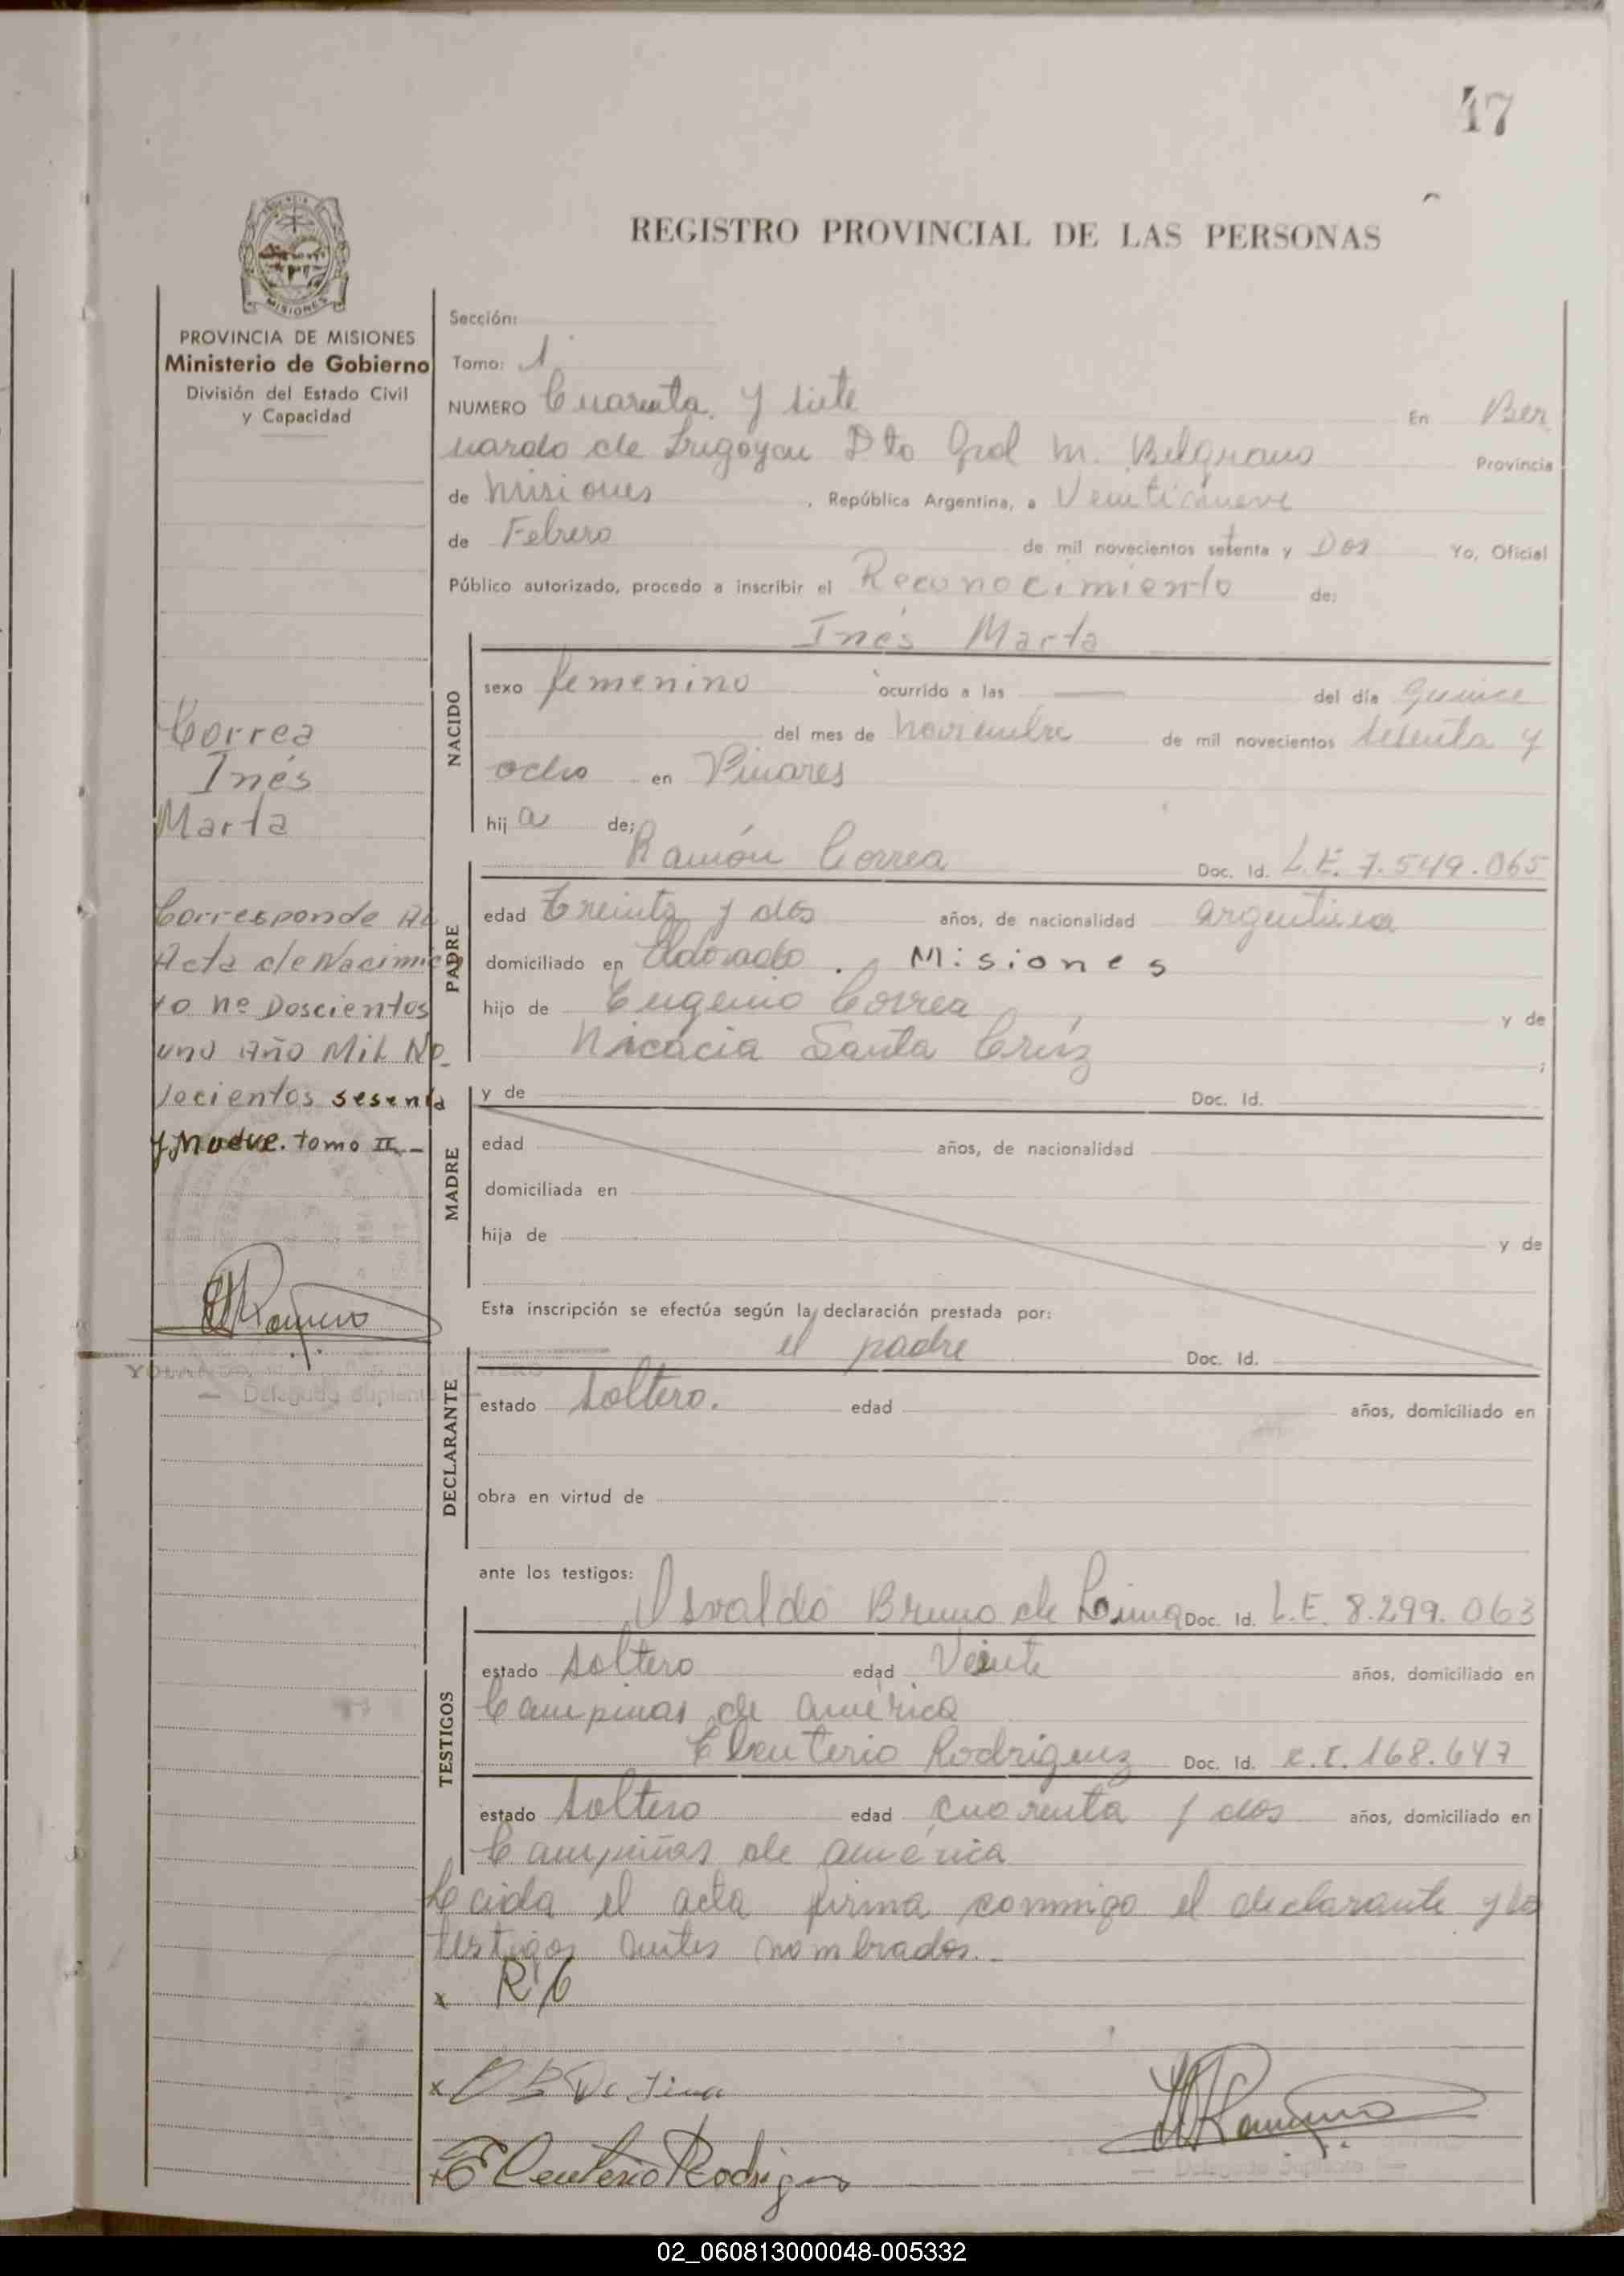 47
REGISTRO PROVINCIAL DE LAS PERSONAS
MISIONES
PROVINCIA DE MISIONES
Ministerio de Gobierno
División del Estado Civil
y Capacidad
Correa
Inés
Marta
Corresponde Al
Acta de Nacimien
to nº Doscientos
uno Año Mil No_
vecientos sesenta
y Nueve. tomo II.-
Sección:
Tomo: 1
NUMERO Cuarenta y siete En Ber
nardo de Irigoyen Dto Gral M. Belgrano Provincia
de Misiones, República Argentina, a Veintinueve
de Febrero de mil novecientos setenta y Dos Yo, Oficial
Público autorizado, procedo a inscribir el Reconocimiento de:
Inés Marta
NACIDO
sexo femenino ocurrido a las del día quince
del mes de noviembre de mil novecientos sesenta y
ocho en Pinares
hija de;
Ramón Correa Doc. Id. L.E. 7.549.065
PADRE
edad treinta y dos años, de nacionalidad argentina
domiciliado en Eldorado. Misiones
hijo de Eugenio Correa y de
Nicacia Santa Cruz ;
MADRE
y de Doc. Id.
edad años, de nacionalidad
domiciliada en
hija de y de
Esta inscripción se efectúa según la declaración prestada por:
el padre Doc. Id.
DECLARANTE
estado soltero. edad años, domiciliado en
obra en virtud de
ante los testigos:
Osvaldo Bruno de Lima Doc. Id. L.E. 8.299.063
TESTIGOS
estado soltero edad Veinte años, domiciliado en
Campinas de América
Eleuterio Rodriguez Doc. Id. C.I. 168.647
estado soltero edad cuarenta y dos años, domiciliado en
Campiñas de América
Leida el acta firma conmigo el declarante y los
testigos antes nombrados.
x R C
x O B De Lima
x Eleuterio Rodriguez
Delegada Suplente
02_060813000048-005332